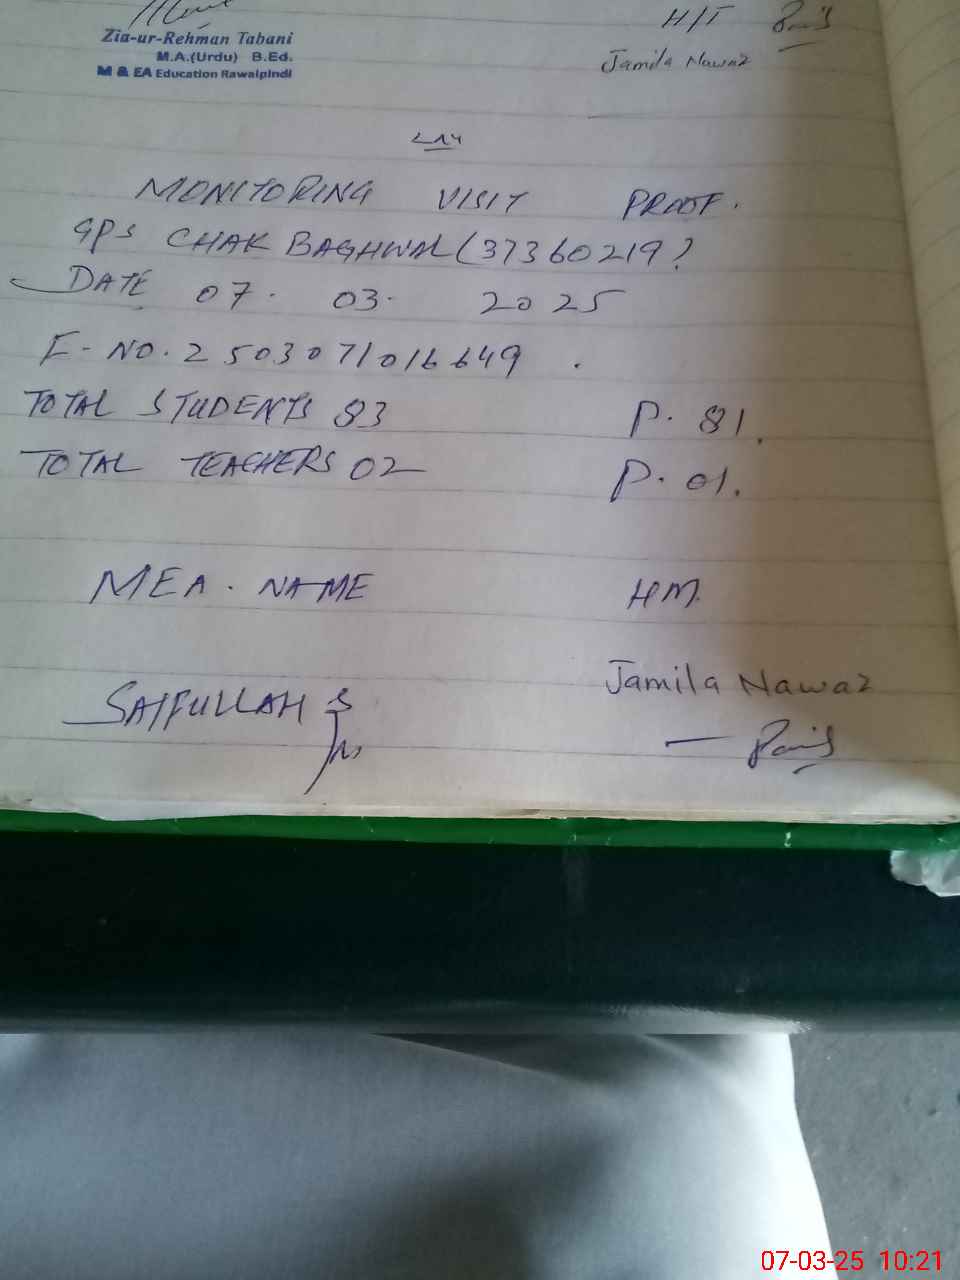 H/T
Zia-ur-Rehman Tabani
M.A.(Urdu) B.Ed.
M & EA Education Rawalpindi
Jamila Nawaz
MONITORING VISIT PROOF.
GPS CHAK BAGHWAL (37360219)
DATE 07. 03. 2025
E-NO. 2503071016649.
TOTAL STUDENTS 83 P. 81.
TOTAL TEACHERS 02 P. 01.
MEA. NAME HM.
SAIFULLAH Jamila Nawaz
07-03-25 10:21